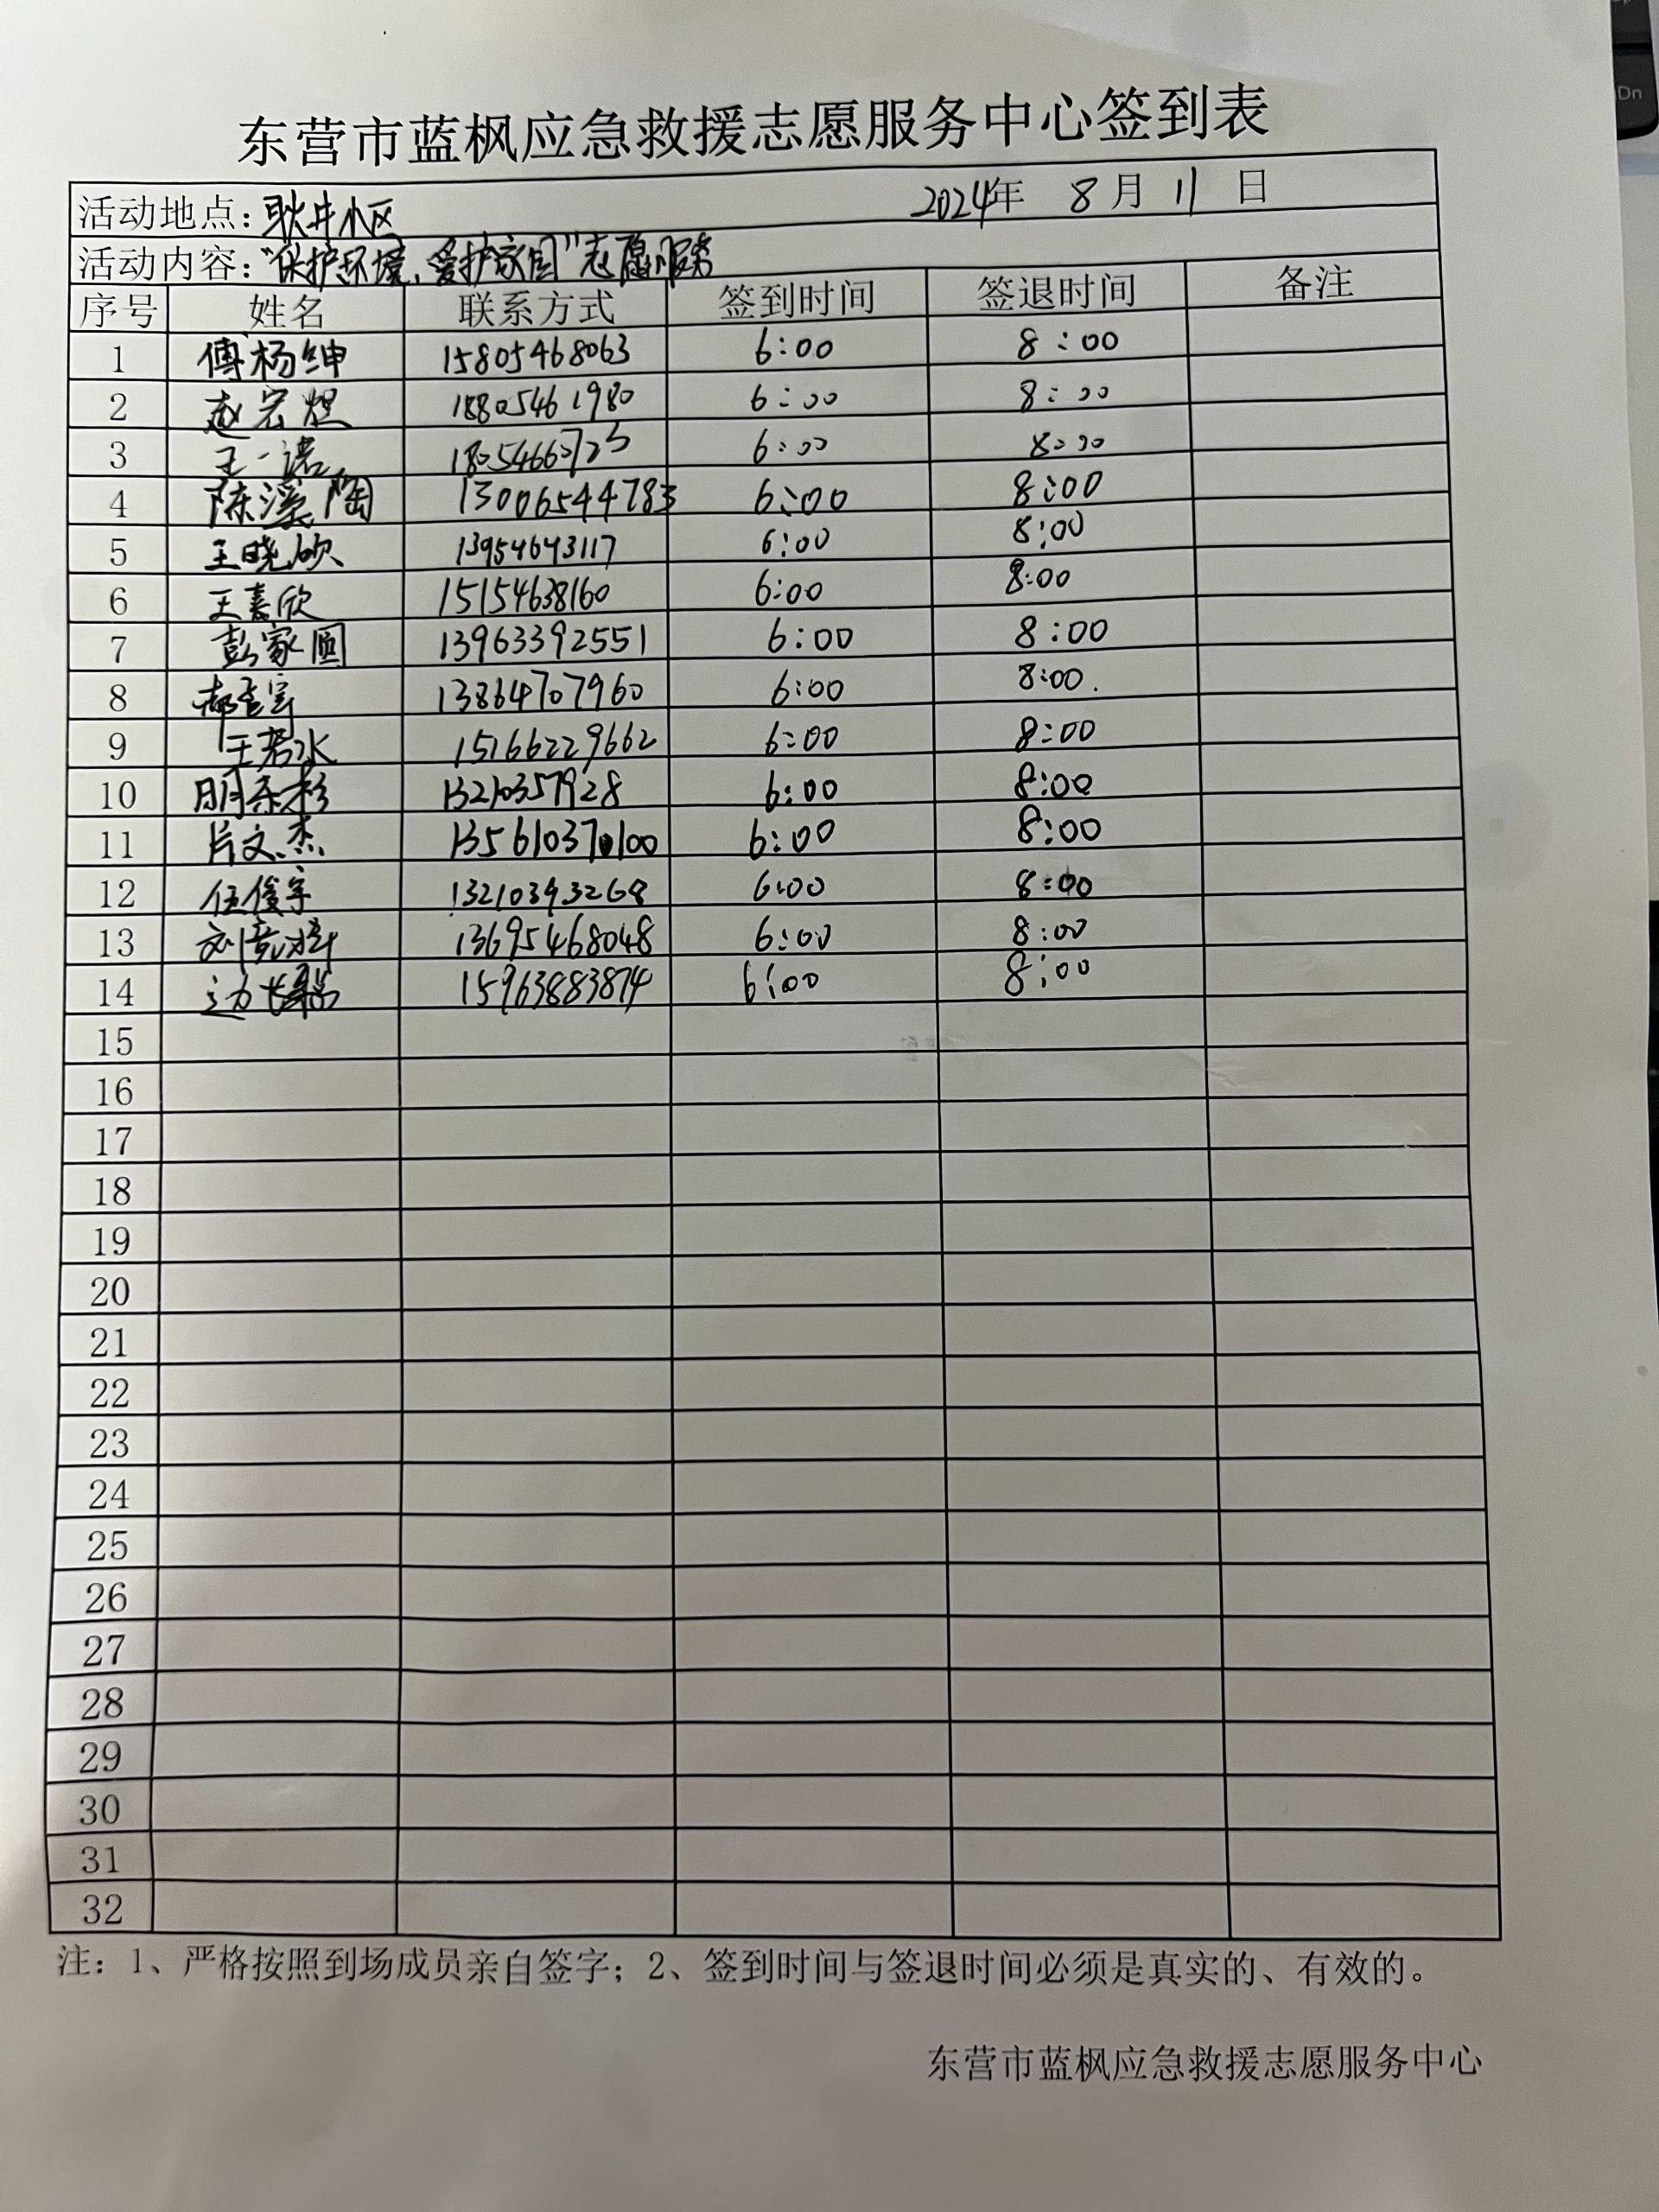 东营市蓝枫应急救援志愿服务中心签到表
活动地点：耿井小区 2024年 8月 11日
活动内容："保护环境、爱护家园"志愿服务
序号 姓名 联系方式 签到时间 签退时间 备注
1 傅杨绅 15805468063 6:00 8:00
2 赵宏煜 18805461980 6:00 8:00
3 王一诺 6:00 8:00
4 陈溪陶 13006544783 6:00 8:00
5 王晓欣 13954643117 6:00 8:00
6 王嘉欣 15154638160 6:00 8:00
7 彭家圆 13963392551 6:00 8:00
8 13864707960 6:00 8:00
9 王若水 15166229662 6:00 8:00
10 13210357928 6:00 8:00
11 片文杰 13561037100 6:00 8:00
12 伍俊宇 13210393268 6:00 8:00
13 13695468048 6:00 8:00
14 15963883874 6:00 8:00
15
16
17
18
19
20
21
22
23
24
25
26
27
28
29
30
31
32
注：1、严格按照到场成员亲自签字；2、签到时间与签退时间必须是真实的、有效的。
东营市蓝枫应急救援志愿服务中心
Dn